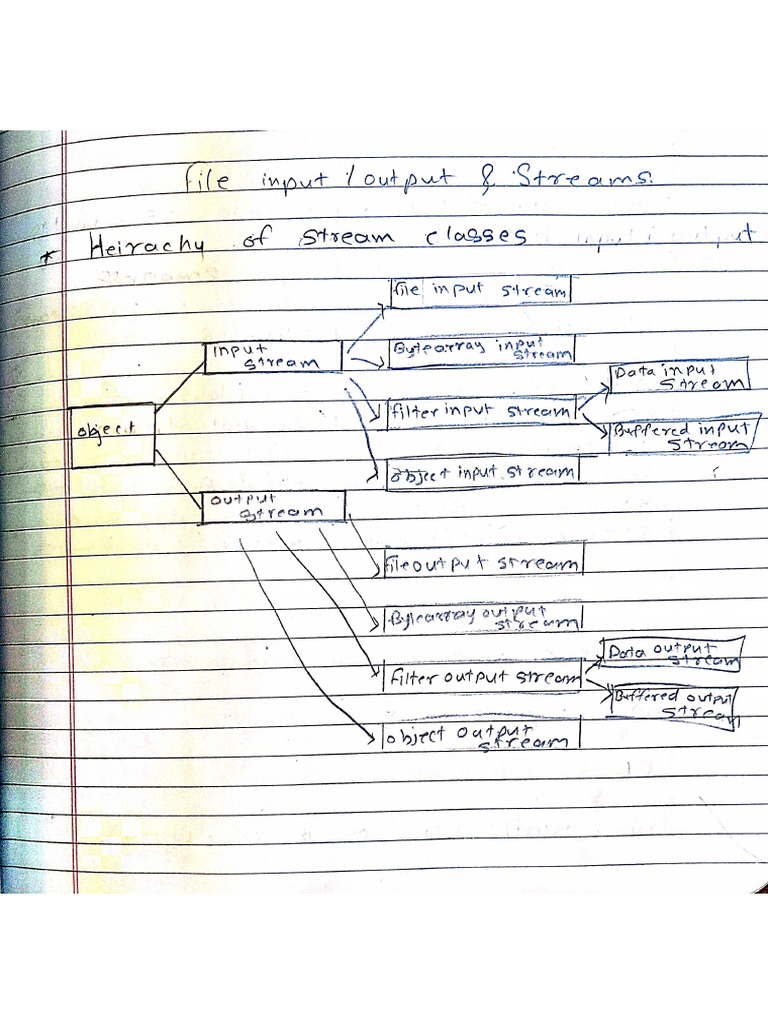 file input / output & Streams.
* Heirachy of stream classes
file input stream
input
stream
Bytearray input
stream
Data input
stream
object
filter input stream
Buffered input
stream
object input stream
output
stream
file output stream
Bytearray output
stream
Data output
stream
filter output stream
Buffered output
stream
object output
stream